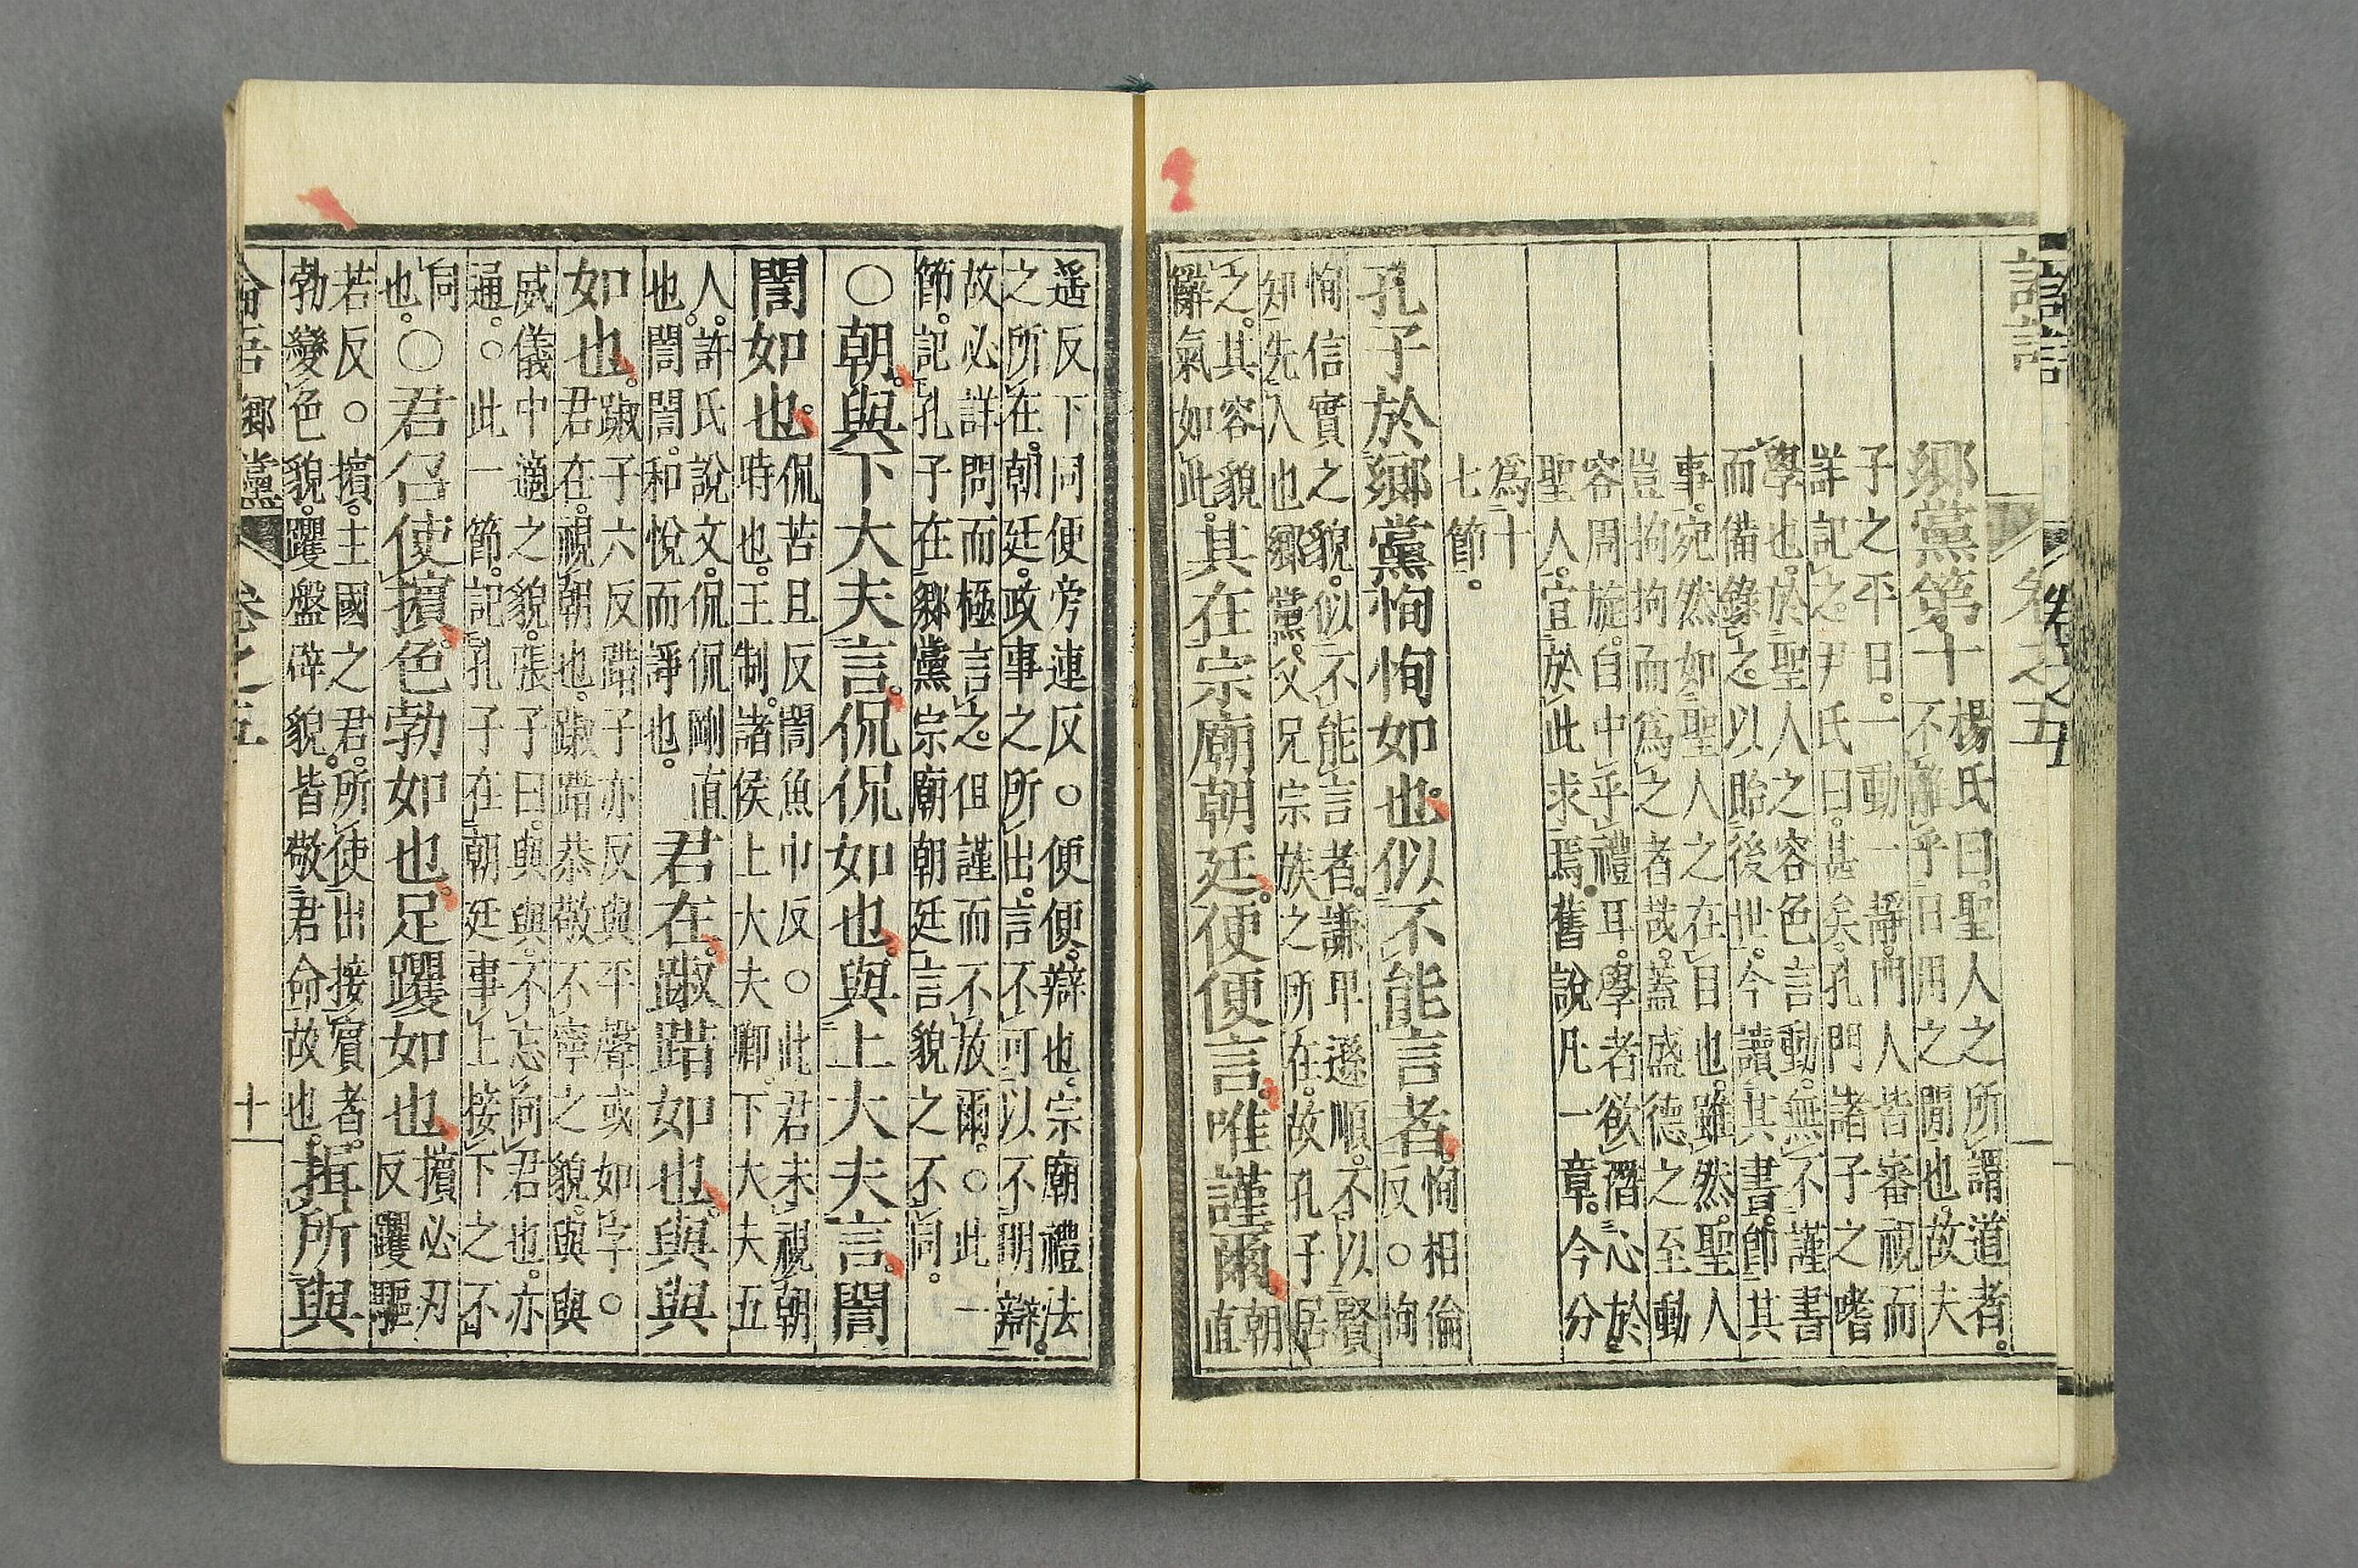 論語 卷之五
鄉黨第十 楊氏曰。聖人之所謂道者。
不離乎日用之閒也。故夫
子之平日。一動一靜。門人皆審視而
詳記之。尹氏曰。甚矣。孔門諸子之嗜
學也。於聖人之容色言動。無不謹書
而備錄之。以貽後世。今讀其書。即其
事。宛然如聖人之在目也。雖然。聖人
豈拘拘而爲之者哉。蓋盛德之至。動
容周旋。自中乎禮耳。學者欲潛心於
聖人。宜於此求焉。舊說凡一章。今分
爲十
七節。
孔子於鄉黨恂恂如也。似不能言者。恂相倫
反○恂
恂信實之貌。似不能言者。謙卑遜順。不以賢
知先人也。鄉黨。父兄宗族之所在。故孔子居
之。其容貌
辭氣如此。其在宗廟朝廷。便便言。唯謹爾。朝
直
遥反下同便旁連反○便便。辯也。宗廟禮法
之所在。朝廷。政事之所出。言不可以不明辯。
故必詳問而極言之。但謹而不放爾。○此一
節。記孔子在鄉黨宗廟朝廷言貌之不同。
○朝。與下大夫言。侃侃如也。與上大夫言。誾
誾如也。侃苦旦反誾魚巾反○此君未視朝
時也。王制。諸侯上大夫卿。下大夫五
人。許氏說文。侃侃剛直
也。誾誾。和悅而諍也。君在。踧踖如也。與與
如也。踧子六反踖子亦反與平聲或如字○
君在。視朝也。踧踖恭敬不寧之貌。與與
威儀中適之貌。張子曰。與與。不忘向君也。亦
通。○此一節。記孔子在朝廷事上接下之不
同
也。○君召使擯。色勃如也。足躩如也。擯必刃
反躩驅
若反○擯。主國之君。所使出接賓者。
勃變色貌。躩盤辟貌。皆敬君命故也。揖所與
論語 鄉黨 卷之五 十